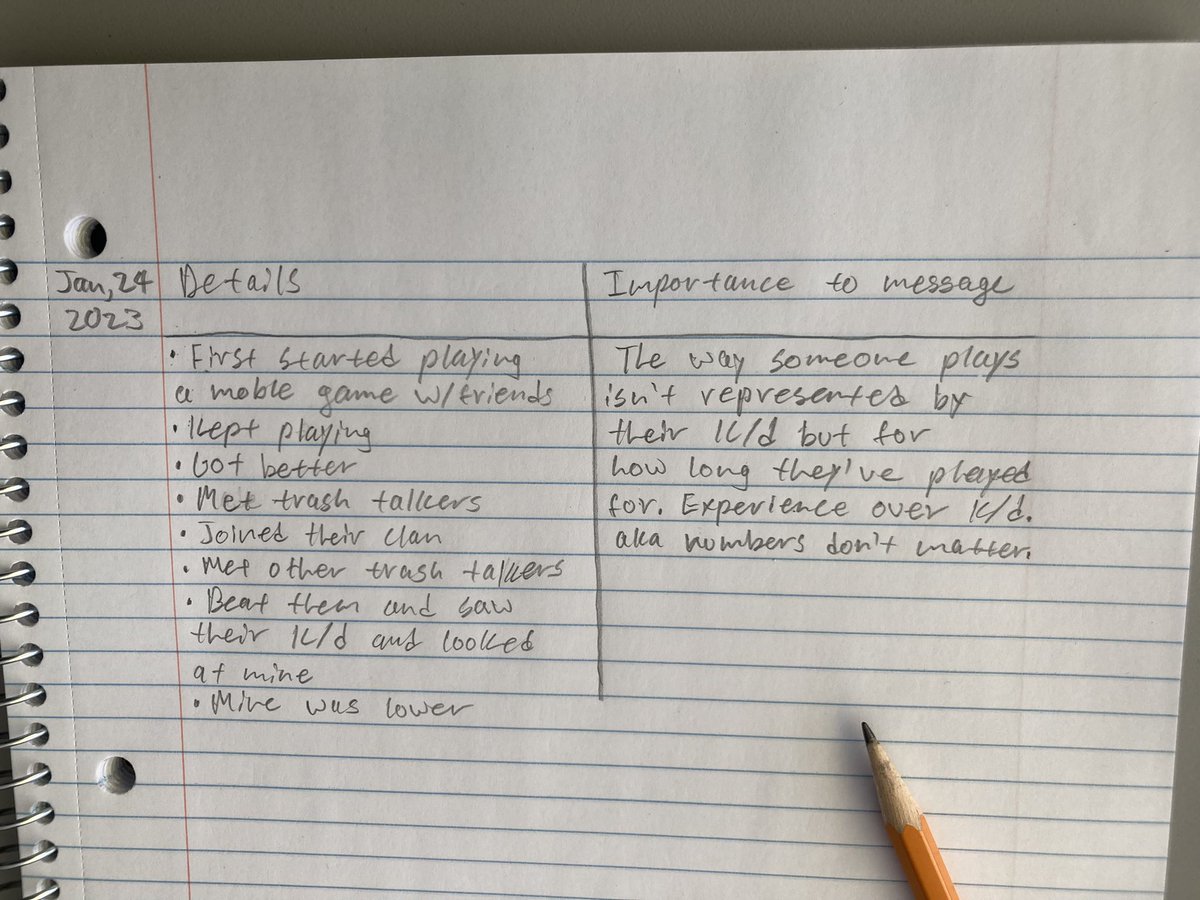 Jan, 24
2023
Details
• First started playing
a moble game w/friends
• Kept playing
• Got better
• Met trash talkers
• Joined their clan
• Met other trash talkers
• Beat them and saw
their K/d and looked
at mine
• Mine was lower
Importance to message
The way someone plays
isn't represented by
their K/d but for
how long they've played
for. Experience over K/d.
aka numbers don't matter.